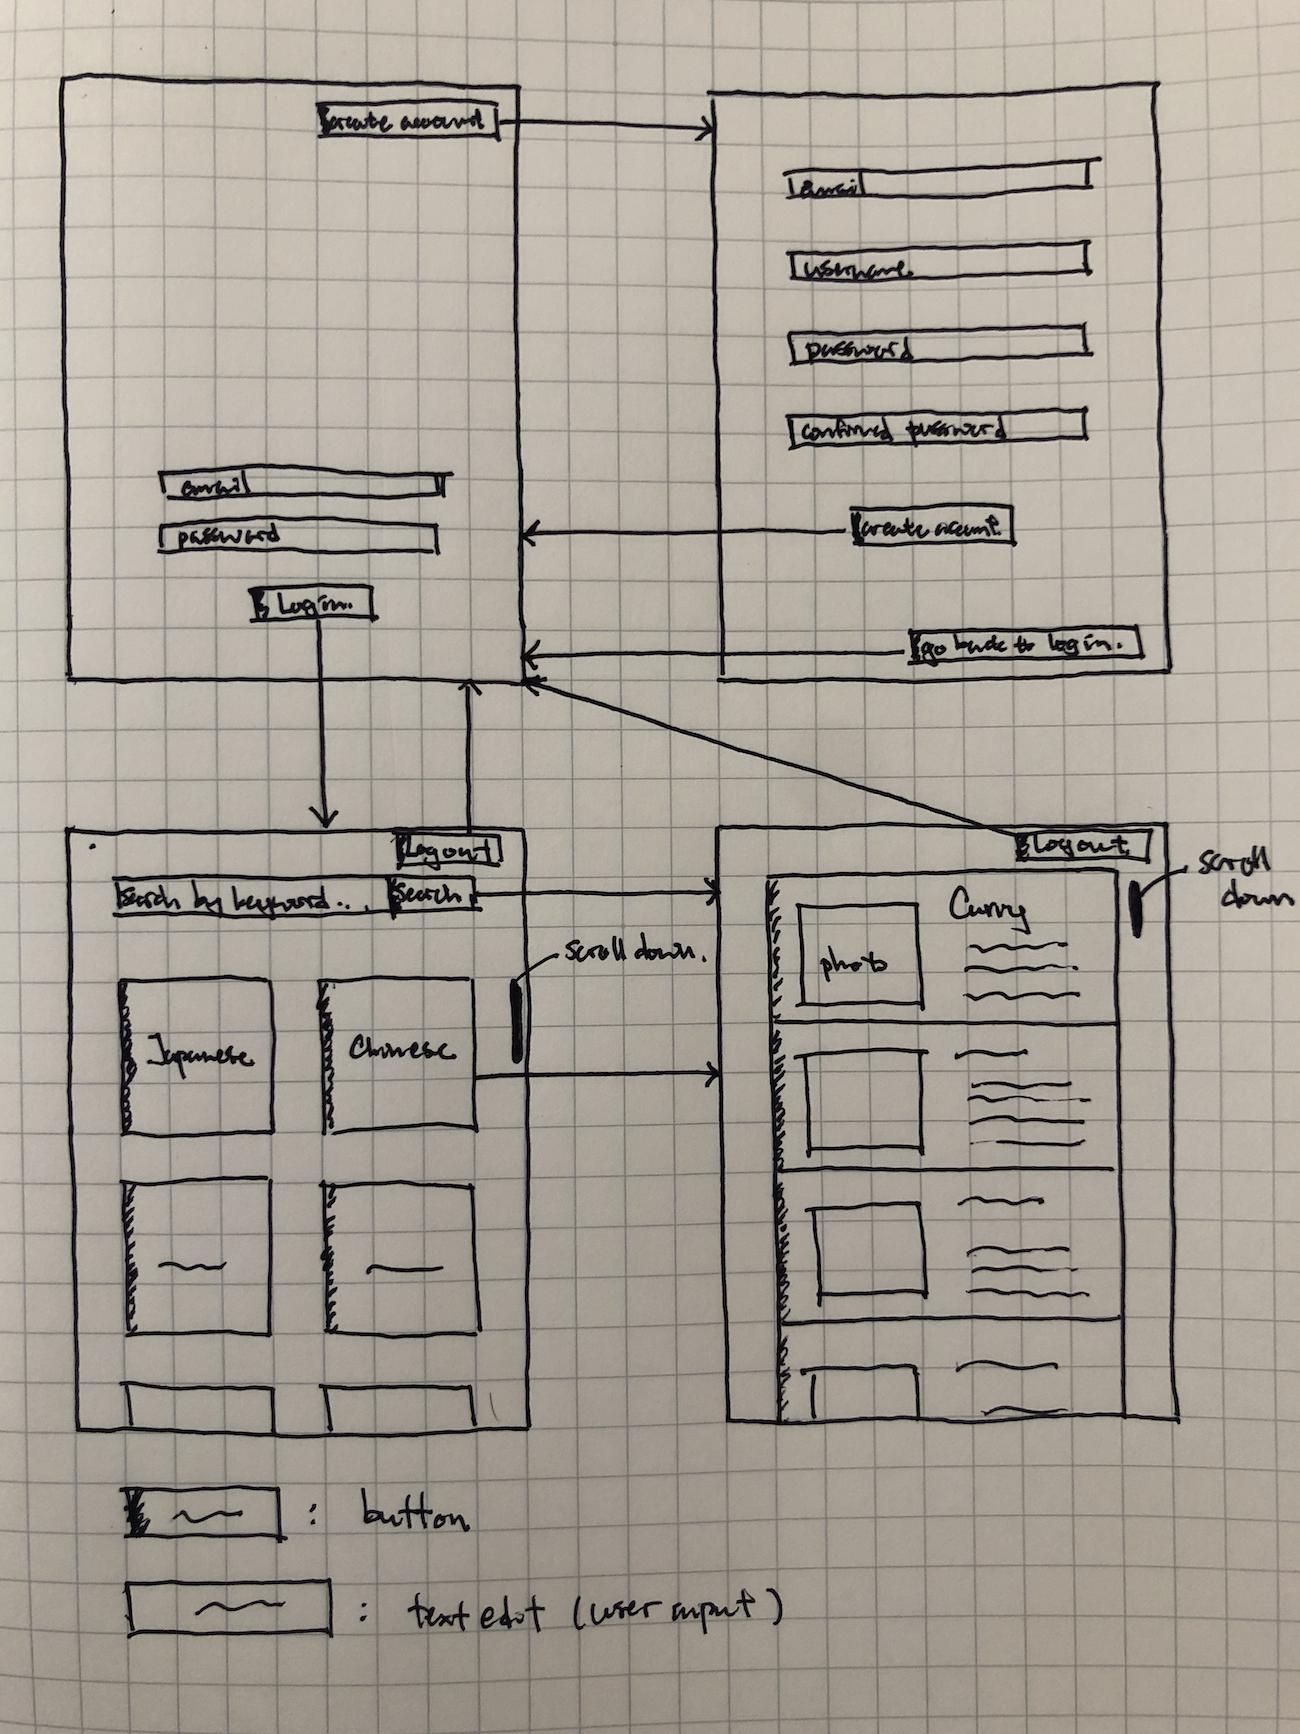 create account
email
password
Login.
email
username.
password
confirmed password
create acount.
go back to login.
Logout
Search by keyword...
Search.
scroll down.
Japanese
Chinese
Logout
scroll
down
Curry
photo
: button
: text edit (user input)